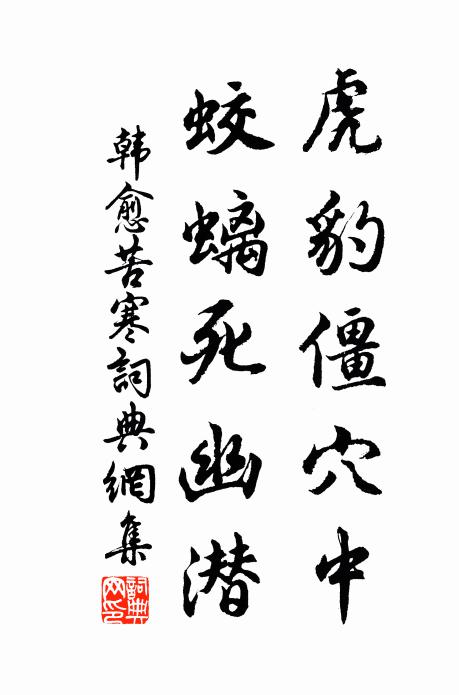 虎豹僵穴中
蛟螭死幽潜
韩愈苦寒詞典網集
詞典网印